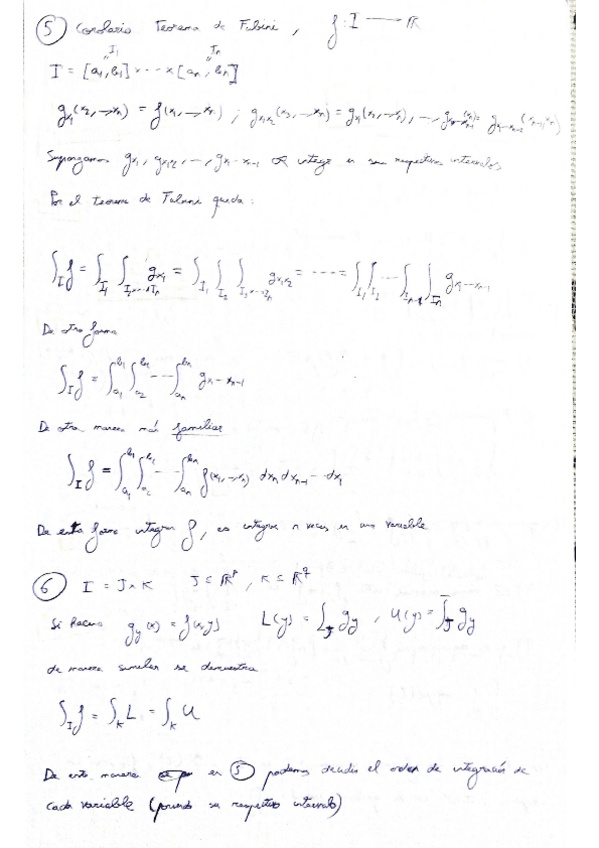 ⑤ Corolario Teorema de Fubini, f: I → ℝ
I = [a₁, b₁] × ⋯ × [aₙ, bₙ]
I₁ Iₙ
g_{x₁}(x₂, ⋯, xₙ) = f(x₁, ⋯, xₙ) ; g_{x₁x₂}(x₃, ⋯, xₙ) = g_{x₁}(x₂, ⋯, xₙ), ⋯,
Supongamos g_{x₁}, g_{x₁x₂}, ⋯, g_{x₁⋯xₙ₋₁} integr en sus respectivos intervalos
Por el teorema de Fubini queda:
∫_I f = ∫_{I₁} ∫_{I₂×⋯×Iₙ} g_{x₁} = ∫_{I₁} ∫_{I₂} ∫_{I₃×⋯×Iₙ} g_{x₁x₂} = ⋯ = ∫_{I₁} ∫_{I₂} ⋯ ∫_{Iₙ₋₁} ∫_{Iₙ} g_{x₁⋯xₙ₋₁}
De otra forma
∫_I f = ∫_{a₁}^{b₁} ∫_{a₂}^{b₂} ⋯ ∫_{aₙ}^{bₙ} g_{x₁⋯xₙ₋₁}
De otra manera más familiar
∫_I f = ∫_{a₁}^{b₁} ∫_{a₂}^{b₂} ⋯ ∫_{aₙ}^{bₙ} f(x₁, ⋯, xₙ) dxₙ dxₙ₋₁ ⋯ dx₁
De esta forma integrar f, es integrar n veces en una variable
⑥ I = J × K J ⊆ ℝᵖ, K ⊆ ℝ^q
Si hacemos g_y(x) = f(x,y) L(y) = ∫_J g_y , U(y) = ∫_J g_y
de manera similar se demuestra
∫_I f = ∫_K L = ∫_K U
De esta manera en ⑤ podemos decidir el orden de integración de
cada variable (poniendo su respectivo intervalo)